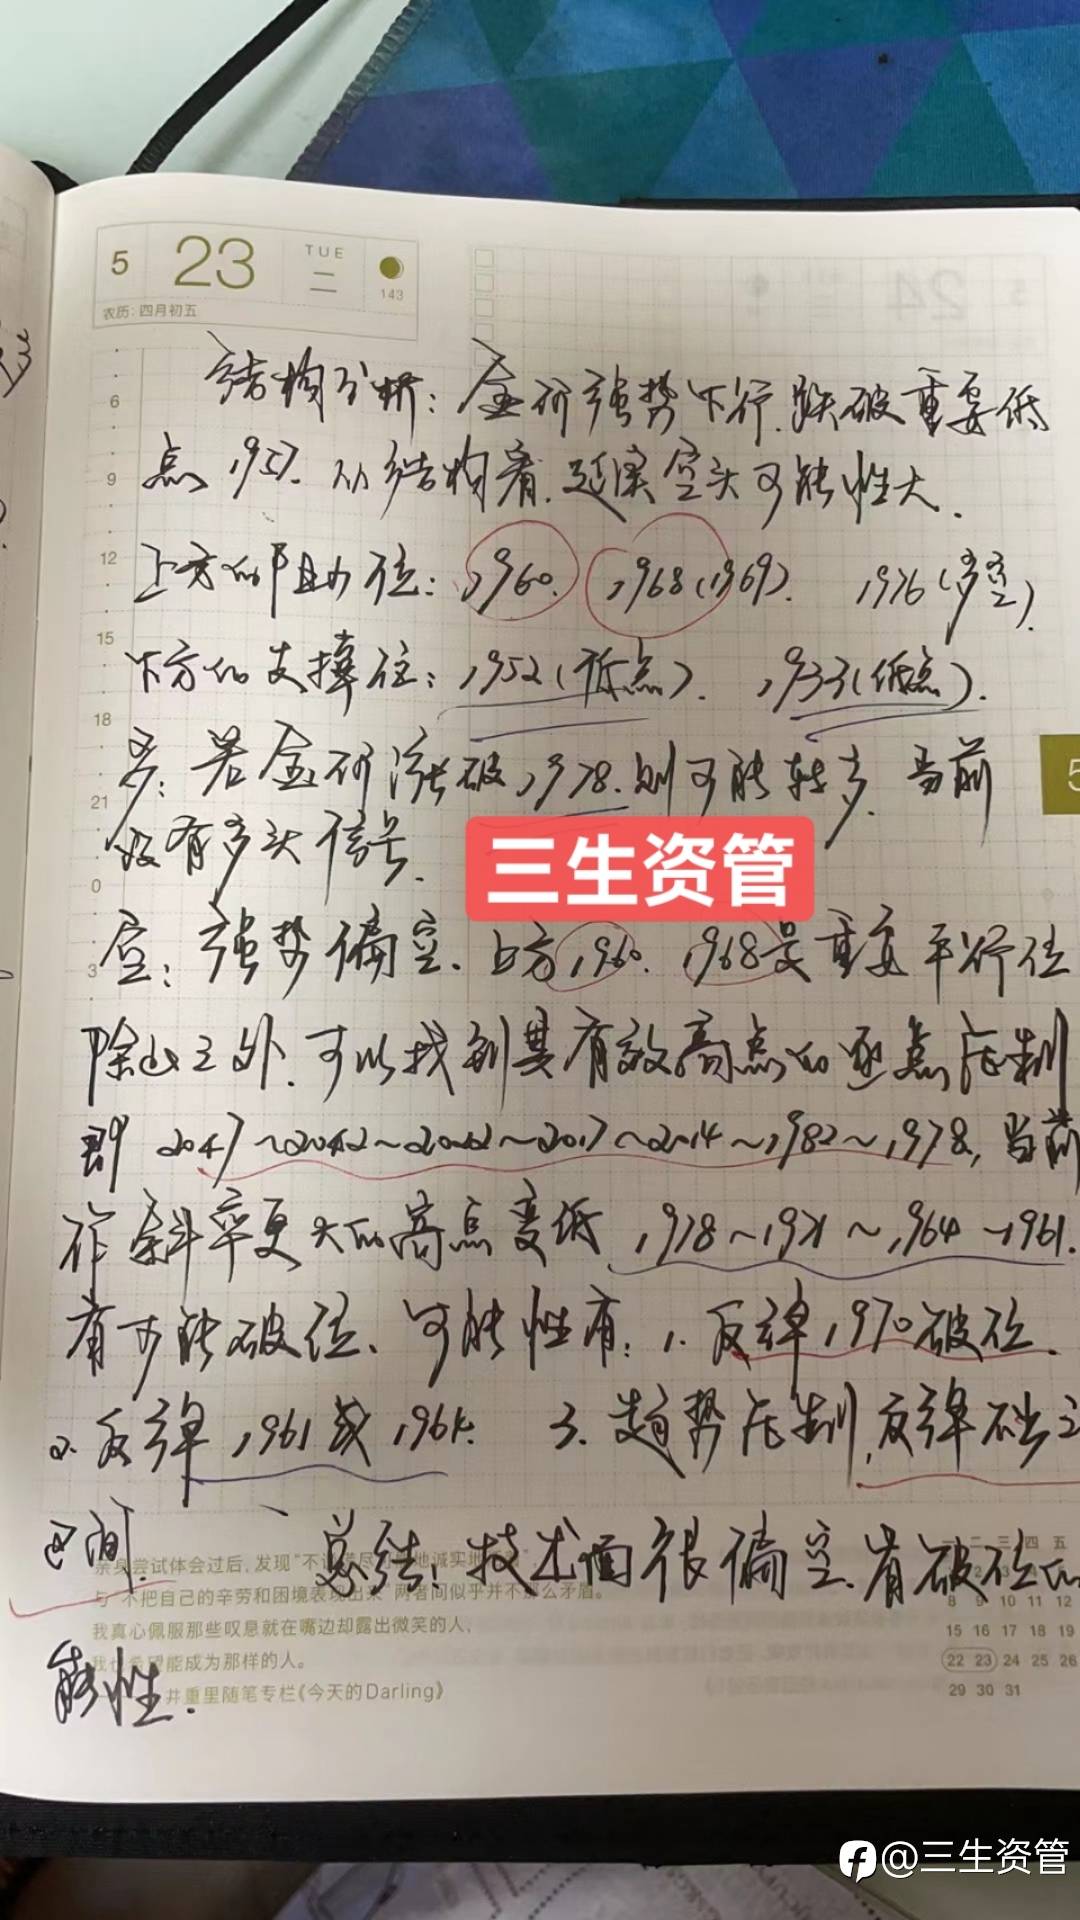 5 23 TUE 二 143
农历:四月初五
结构分析:金价强势下行,跌破重要低
点1957.从结构看,延续空头可能性大.
上方的阻力位:1960. 1968(1969). 1976(多空).
下方的支撑位:1952(低点). 1933(低点).
多:若金价涨破1978.则可能转多.当前
没有多头信号.
三生资管
空:强势偏空.上方1960. 1968是重要平行位
除此之外.可以找到其有效高点的逐点压制
即2047~2042~2022~2017~2014~1982~1978,当前
作斜率更大的高点变低1978~1971~1964~1961.
有可能破位、可能性有:1.反弹1970破位.
2.反弹1961或1964. 3.趋势压制,反弹
空间. 总结:技术面很偏空.有破位的
能性.
6
9
12
15
18
21
0
3
5
亲身尝试体会过后,发现"不
与"不把自己的辛劳和困境表现出来"两者间似乎并不那么矛盾。
我真心佩服那些叹息就在嘴边却露出微笑的人,
我也希望能成为那样的人。
井重里随笔专栏《今天的Darling》
二 三 四 五
8 9 10 11 12
15 16 17 18 19
22 23 24 25 26
29 30 31
@三生资管